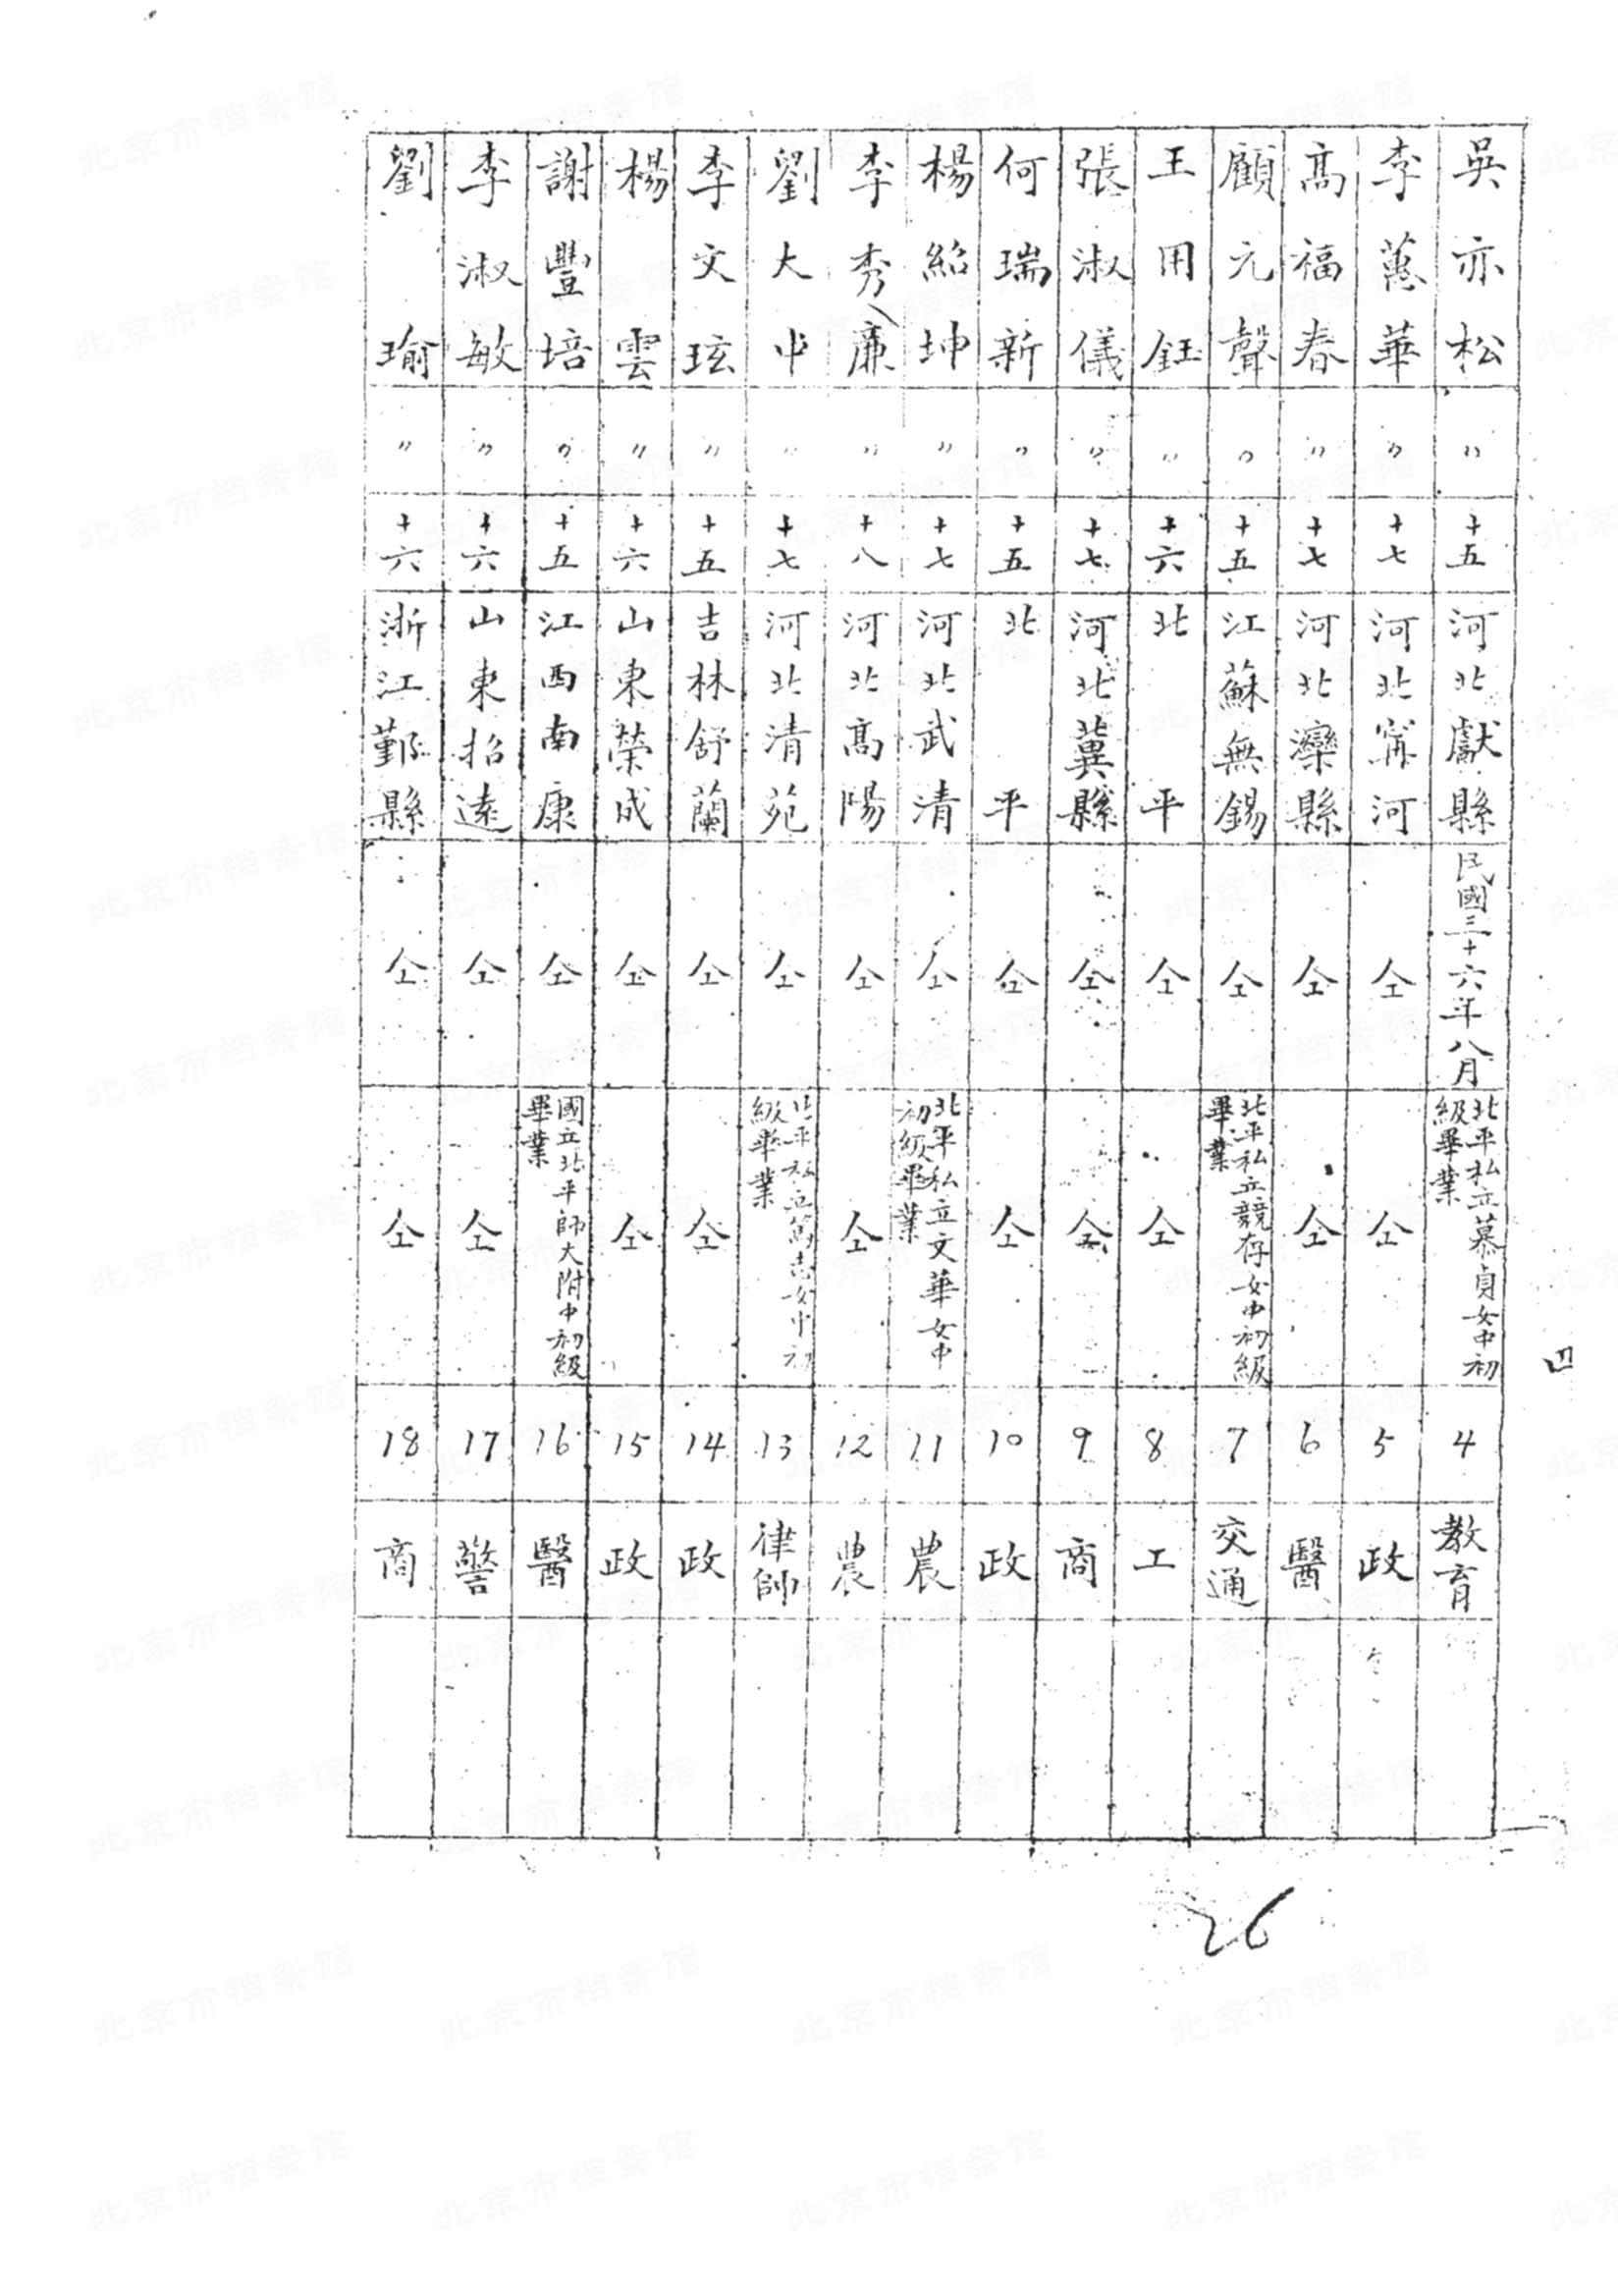 吳亦松 〃 十五 河北獻縣 民國三十六年八月 北平私立慕貞女中初級畢業 4 教育
李蕙華 〃 十七 河北甯河 仝 仝 5 政
高福春 〃 十七 河北灤縣 仝 仝 6 醫
顧元聲 〃 十五 江蘇無錫 仝 北平私立競存女中初級畢業 7 交通
王用鈺 〃 十六 北平 仝 仝 8 工
張淑儀 〃 十七 河北冀縣 仝 仝 9 商
何瑞新 〃 十五 北平 仝 仝 10 政
楊紹坤 〃 十七 河北武清 仝 北平私立文華女中初級畢業 11 農
李秀廉 〃 十八 河北高陽 仝 仝 12 農
劉大中 〃 十七 河北清苑 仝 北平私立篤志女中初級畢業 13 律師
李文玹 〃 十五 吉林舒蘭 仝 仝 14 政
楊雲 〃 十六 山東榮成 仝 仝 15 政
謝豐培 〃 十五 江西南康 仝 國立北平師大附中初級畢業 16 醫
李淑敏 〃 十六 山東招遠 仝 仝 17 警
劉瑜 〃 十六 浙江鄞縣 仝 仝 18 商
四
26
北京市档案馆